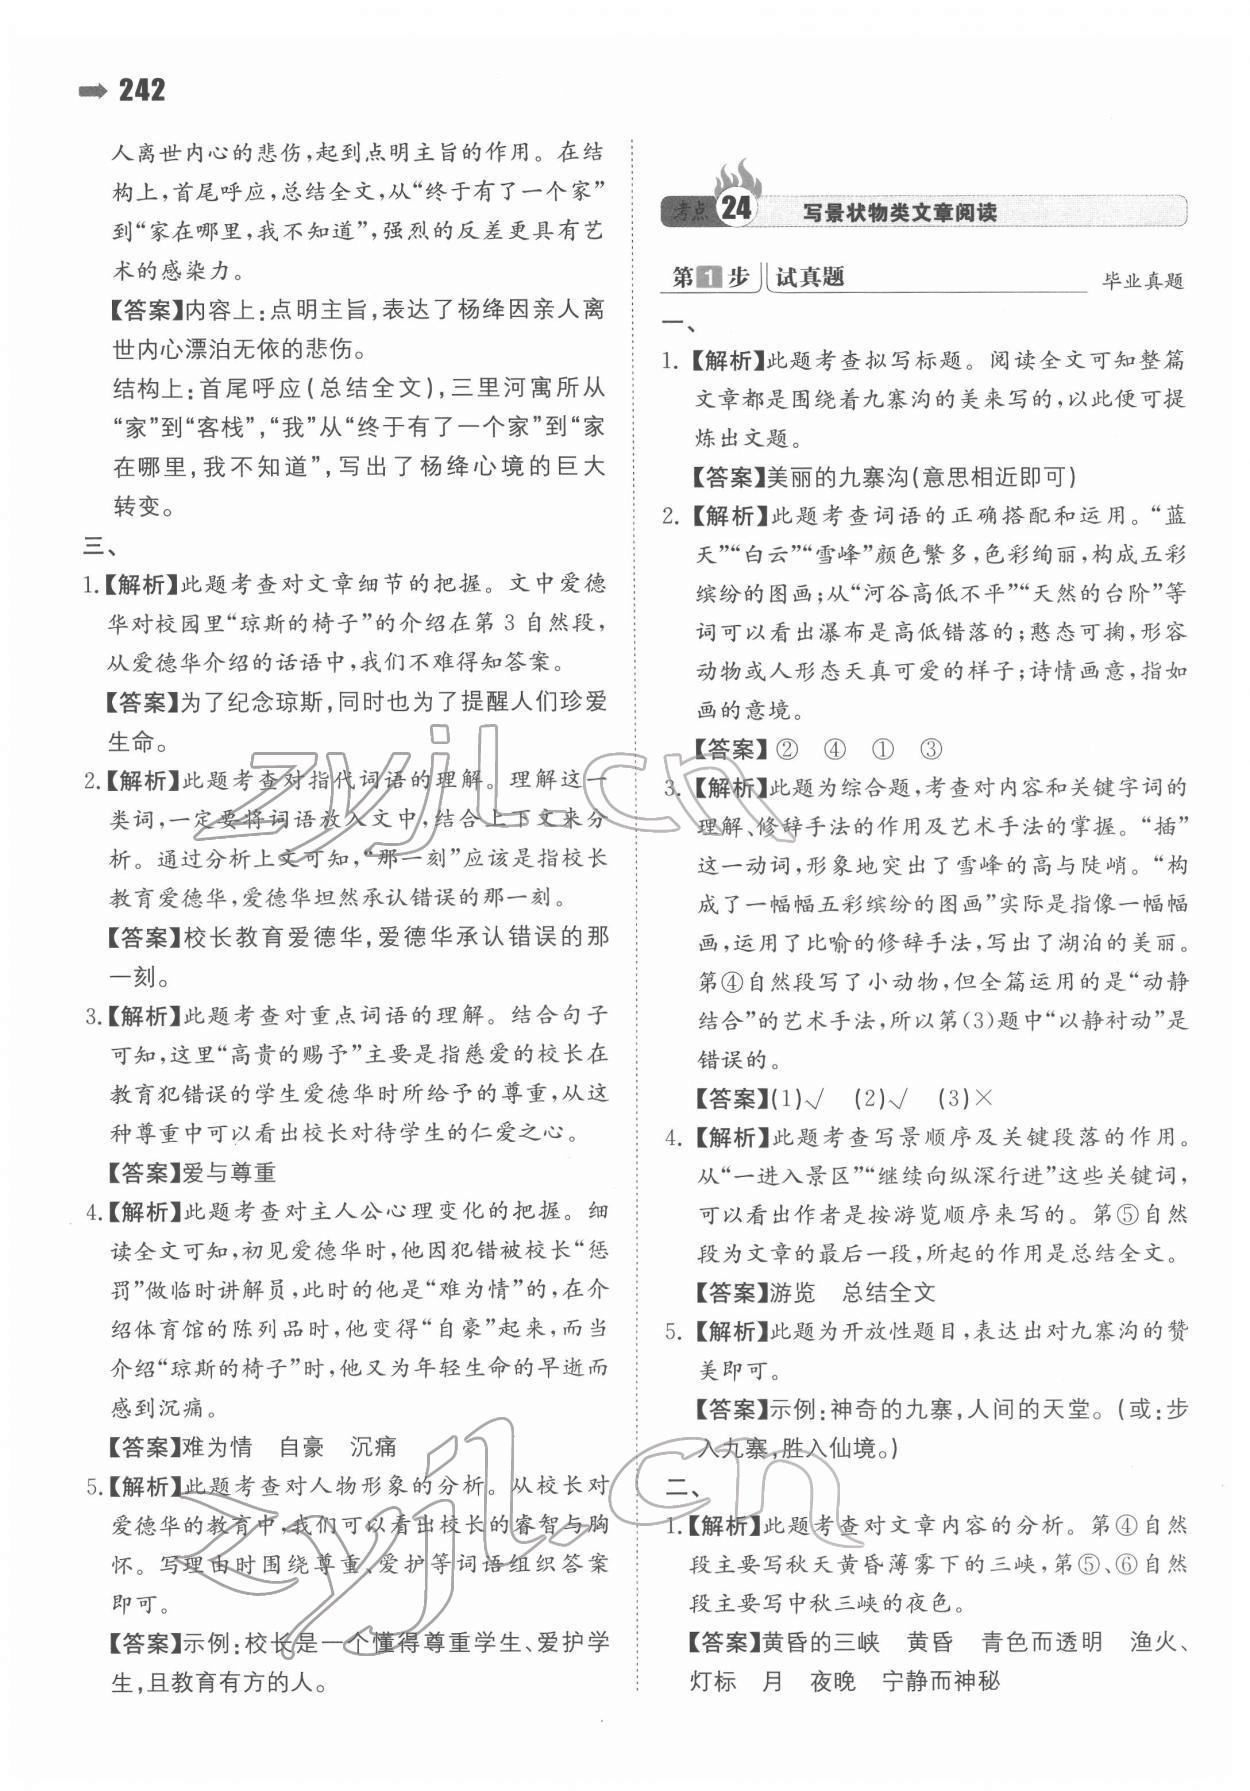 242
人离世内心的悲伤,起到点明主旨的作用。在结
构上,首尾呼应,总结全文,从“终于有了一个家”
到“家在哪里,我不知道”,强烈的反差更具有艺
术的感染力。
【答案】内容上:点明主旨,表达了杨绛因亲人离
世内心漂泊无依的悲伤。
结构上:首尾呼应(总结全文),三里河寓所从
“家”到“客栈”,“我”从“终于有了一个家”到“家
在哪里,我不知道”,写出了杨绛心境的巨大
转变。
三、
1.【解析】此题考查对文章细节的把握。文中爱德
华对校园里“琼斯的椅子”的介绍在第3自然段,
从爱德华介绍的话语中,我们不难得知答案。
【答案】为了纪念琼斯,同时也为了提醒人们珍爱
生命。
2.【解析】此题考查对指代词语的理解。理解这一
类词,一定要将词语放入文中,结合上下文来分
析。通过分析上文可知,“那一刻”应该是指校长
教育爱德华,爱德华坦然承认错误的那一刻。
【答案】校长教育爱德华,爱德华承认错误的那
一刻。
3.【解析】此题考查对重点词语的理解。结合句子
可知,这里“高贵的赐予”主要是指慈爱的校长在
教育犯错误的学生爱德华时所给予的尊重,从这
种尊重中可以看出校长对待学生的仁爱之心。
【答案】爱与尊重
4.【解析】此题考查对主人公心理变化的把握。细
读全文可知,初见爱德华时,他因犯错被校长“惩
罚”做临时讲解员,此时的他是“难为情”的,在介
绍体育馆的陈列品时,他变得“自豪”起来,而当
介绍“琼斯的椅子”时,他又为年轻生命的早逝而
感到沉痛。
【答案】难为情 自豪 沉痛
5.【解析】此题考查对人物形象的分析。从校长对
爱德华的教育中,我们可以看出校长的睿智与胸
怀。写理由时围绕尊重、爱护等词语组织答案
即可。
【答案】示例:校长是一个懂得尊重学生、爱护学
生,且教育有方的人。
考点 24 写景状物类文章阅读
第1步 试真题 毕业真题
一、
1.【解析】此题考查拟写标题。阅读全文可知整篇
文章都是围绕着九寨沟的美来写的,以此便可提
炼出文题。
【答案】美丽的九寨沟(意思相近即可)
2.【解析】此题考查词语的正确搭配和运用。“蓝
天”“白云”“雪峰”颜色繁多,色彩绚丽,构成五彩
缤纷的图画;从“河谷高低不平”“天然的台阶”等
词可以看出瀑布是高低错落的;憨态可掬,形容
动物或人形态天真可爱的样子;诗情画意,指如
画的意境。
【答案】② ④ ① ③
3.【解析】此题为综合题,考查对内容和关键字词的
理解、修辞手法的作用及艺术手法的掌握。“插”
这一动词,形象地突出了雪峰的高与陡峭。“构
成了一幅幅五彩缤纷的图画”实际是指像一幅幅
画,运用了比喻的修辞手法,写出了湖泊的美丽。
第④自然段写了小动物,但全篇运用的是“动静
结合”的艺术手法,所以第(3)题中“以静衬动”是
错误的。
【答案】(1)√ (2)√ (3)×
4.【解析】此题考查写景顺序及关键段落的作用。
从“一进入景区”“继续向纵深行进”这些关键词,
可以看出作者是按游览顺序来写的。第⑤自然
段为文章的最后一段,所起的作用是总结全文。
【答案】游览 总结全文
5.【解析】此题为开放性题目,表达出对九寨沟的赞
美即可。
【答案】示例:神奇的九寨,人间的天堂。(或:步
入九寨,胜入仙境。)
二、
1.【解析】此题考查对文章内容的分析。第④自然
段主要写秋天黄昏薄雾下的三峡,第⑤、⑥自然
段主要写中秋三峡的夜色。
【答案】黄昏的三峡 黄昏 青色而透明 渔火、
灯标 月 夜晚 宁静而神秘
zyjl.cn
zyjl.cn